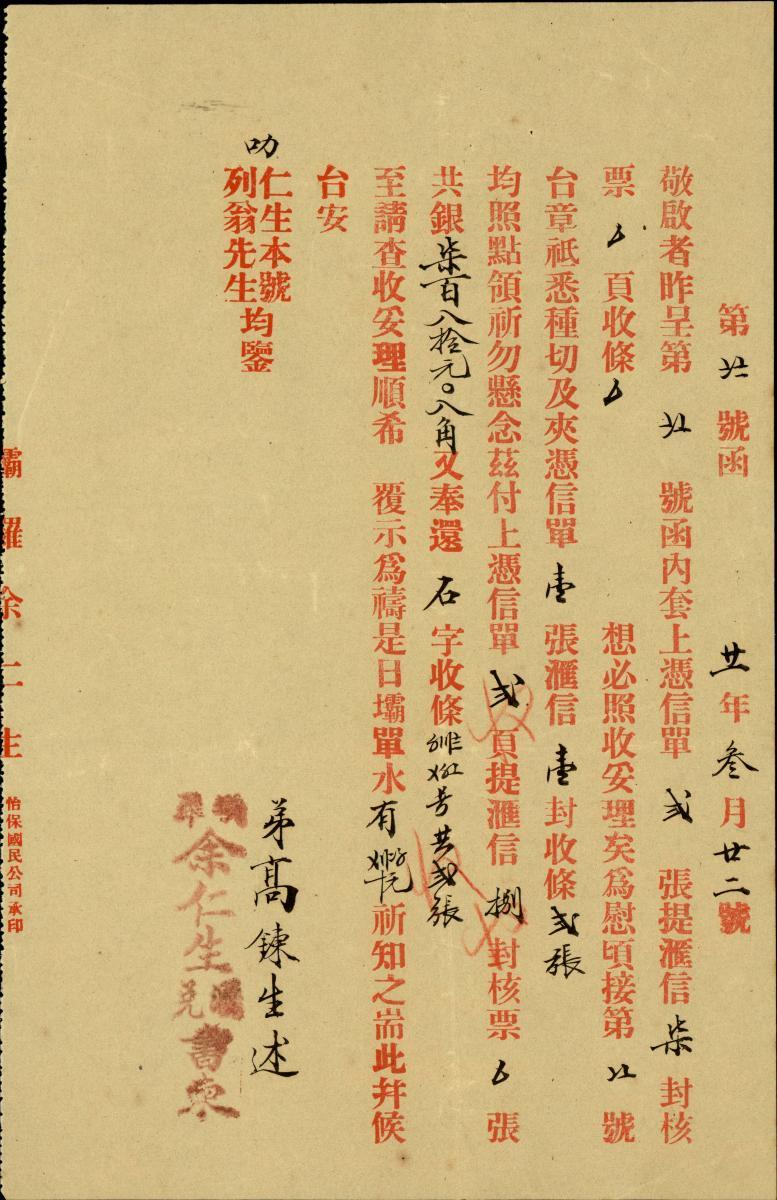 第 號函 廿一年叁月廿二號
敬啟者昨呈第 號函內套上憑信單 弍 張提滙信 柒 封核
票 頁收條 想必照收妥理矣爲慰頃接第 號
台章祗悉種切及夾憑信單 壹 張滙信 壹 封收條 弍張
均照點領祈勿懸念茲付上憑信單 弍 頁提滙信 捌 封核票 張
共銀柒百八拾元〇八角又奉還 石 字收條 共弍張
至請查收妥理順希 覆示爲禱是日壩單水有 祈知之耑此幷候
台安
叻仁生本號
列翁先生均鑒
弟高鍊生述
余仁生 滙兌 書柬
壩羅余仁生 怡保國民公司承印